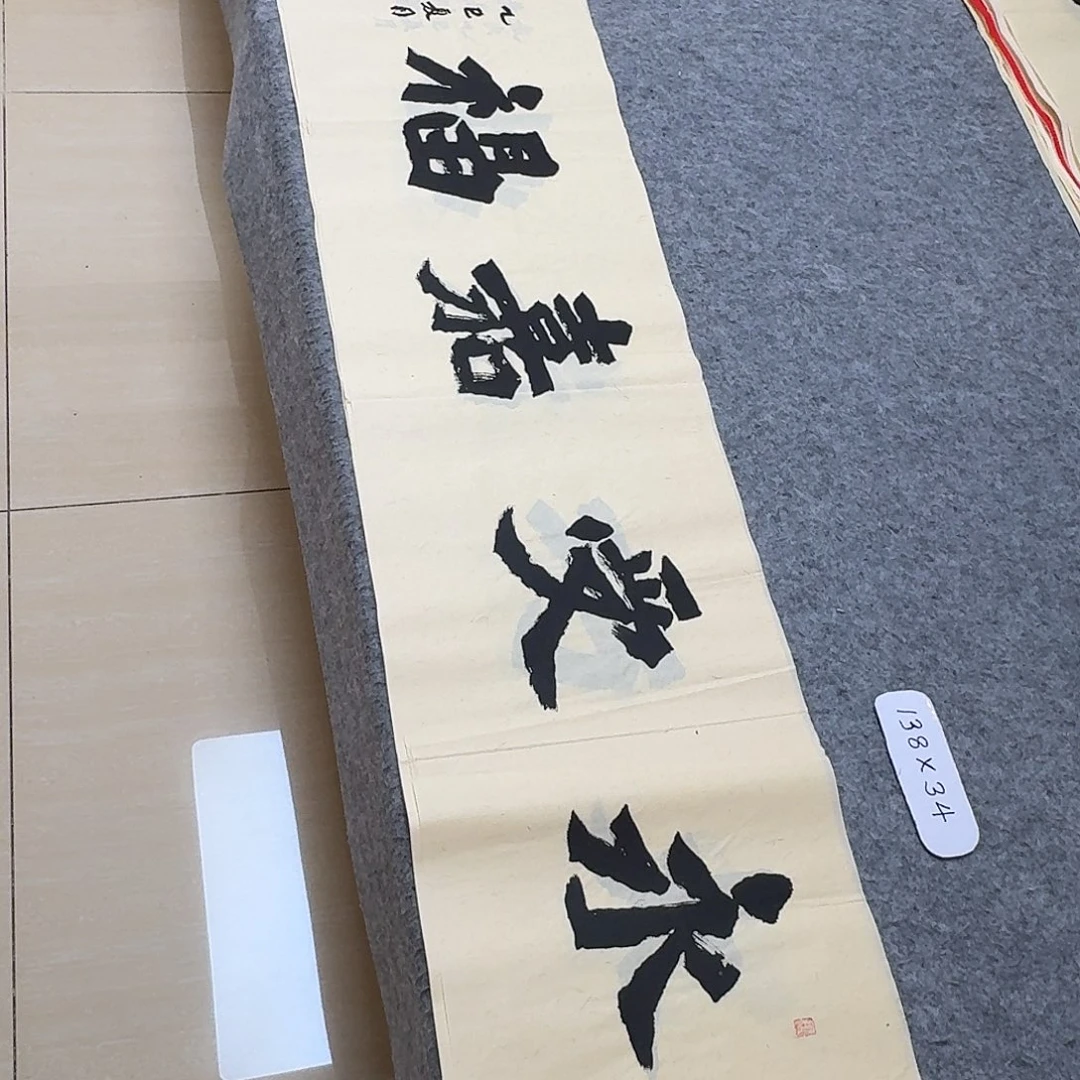 永受嘉福
乙巳夏月
138×34